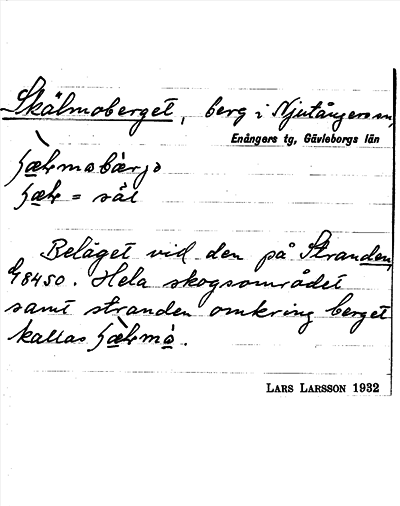 Skälmoberget, berg i Njutångers sn,
Enångers tg, Gävleborgs län
= säl
Beläget vid den på Stranden,
48450. Hela skogsområdet
samt stranden omkring berget
kallas
LARS LARSSON 1932